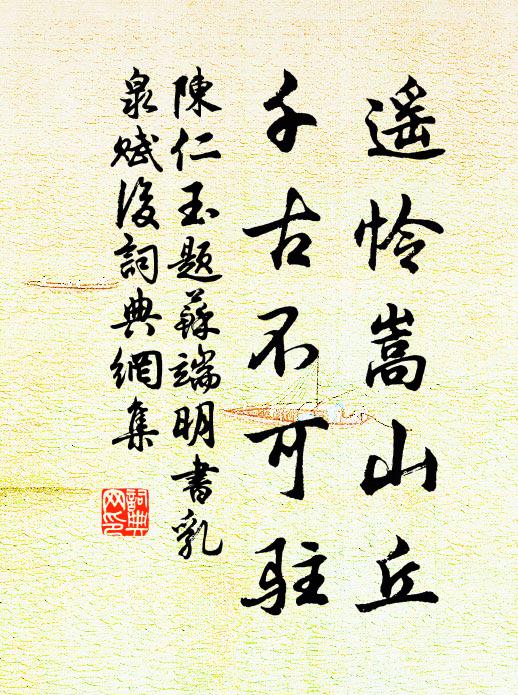 遥怜嵩山丘
千古不可驻
陳仁玉题蘇端明書乳
泉赋後詞典網集
詞典
网印